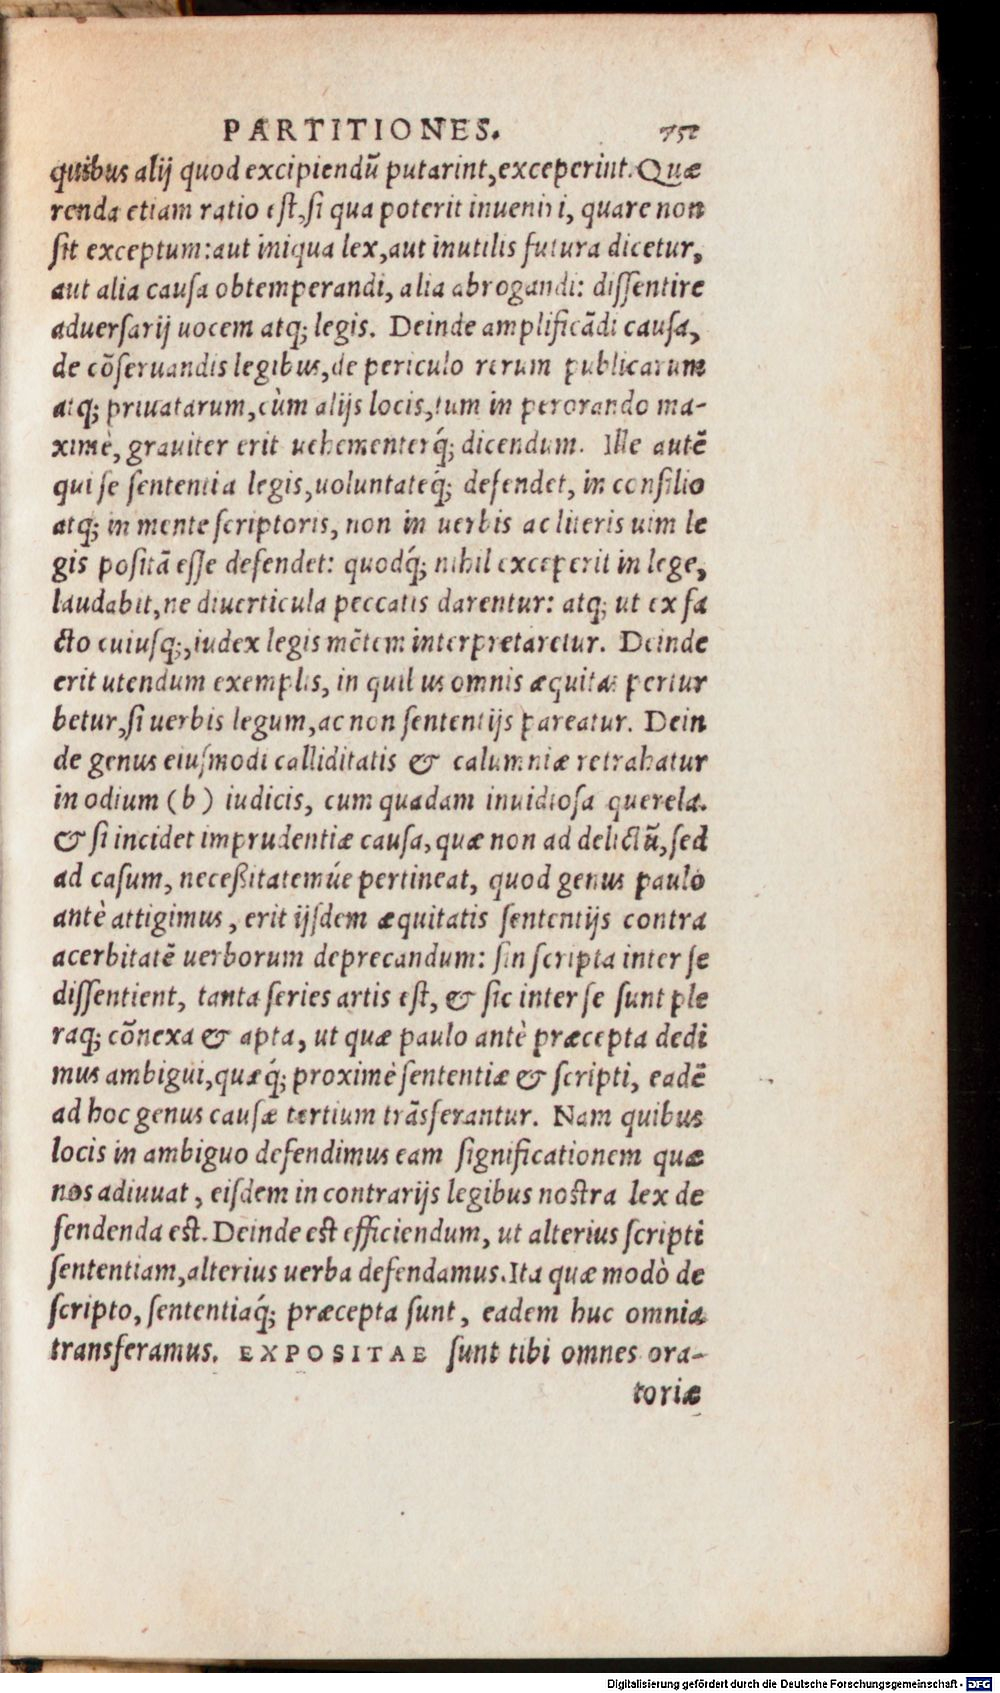 PARTITIONES. 752
quibus alij quod excipiendũ putarint, exceperint. Quæ
renda etiam ratio est, si qua poterit inueniri, quare non
sit exceptum: aut iniqua lex, aut inutilis futura dicetur,
aut alia causa obtemperandi, alia abrogandi: dissentire
aduersarij uocem atq; legis. Deinde amplificãdi causa,
de cõseruandis legibus, de periculo rerum publicarum
atq; priuatarum, cùm alijs locis, tum in perorando ma-
ximè, grauiter erit uehementerq́; dicendum. Ille autẽ
qui se sententia legis, uoluntateq́; defendet, in consilio
atq; in mente scriptoris, non in uerbis ac literis uim le
gis positã esse defendet: quodq́; nihil exceperit in lege,
laudabit, ne diuerticula peccatis darentur: atq; ut ex fa
cto cuiusq;, iudex legis mẽtem interpretaretur. Deinde
erit utendum exemplis, in quibus omnis æquitas pertur
betur, si uerbis legum, ac non sententijs pareatur. Dein
de genus eiusmodi calliditatis & calumniæ retrahatur
in odium (b) iudicis, cum quadam inuidiosa querela.
& si incidet imprudentiæ causa, quæ non ad delictũ, sed
ad casum, neceßitatemúe pertineat, quod genus paulo
antè attigimus, erit ijsdem æquitatis sententijs contra
acerbitatẽ uerborum deprecandum: sin scripta inter se
dissentient, tanta series artis est, & sic inter se sunt ple
raq; cõnexa & apta, ut quæ paulo antè præcepta dedi
mus ambigui, quæq́; proximè sententiæ & scripti, eadẽ
ad hoc genus causæ tertium trãsferantur. Nam quibus
locis in ambiguo defendimus eam significationem quæ
nos adiuuat, eisdem in contrarijs legibus nostra lex de
fendenda est. Deinde est efficiendum, ut alterius scripti
sententiam, alterius uerba defendamus. Ita quæ modò de
scripto, sententiaq́; præcepta sunt, eadem huc omnia
transferamus. EXPOSITAE sunt tibi omnes ora-
toriæ
Digitalisierung gefördert durch die Deutsche Forschungsgemeinschaft - DFG